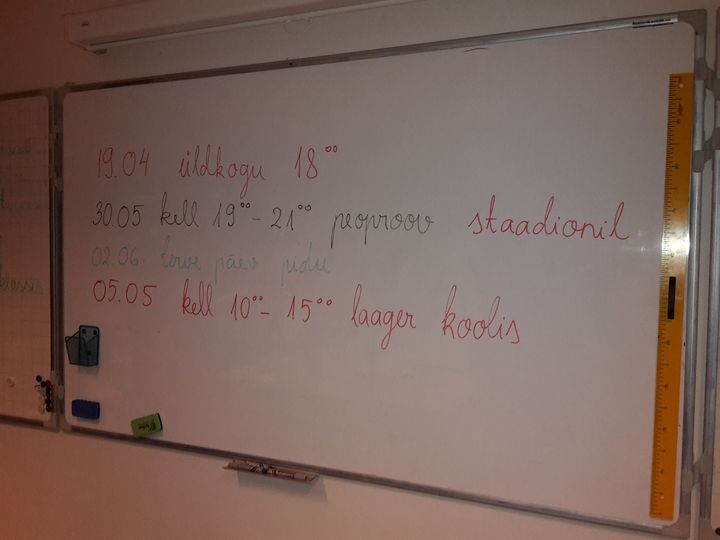 19.04 üldkogu 18⁰⁰
30.05 kell 19⁰⁰-21⁰⁰ peoproov staadionil
02.06. terve päev pidu
05.05 kell 10⁰⁰-15⁰⁰ laager koolis